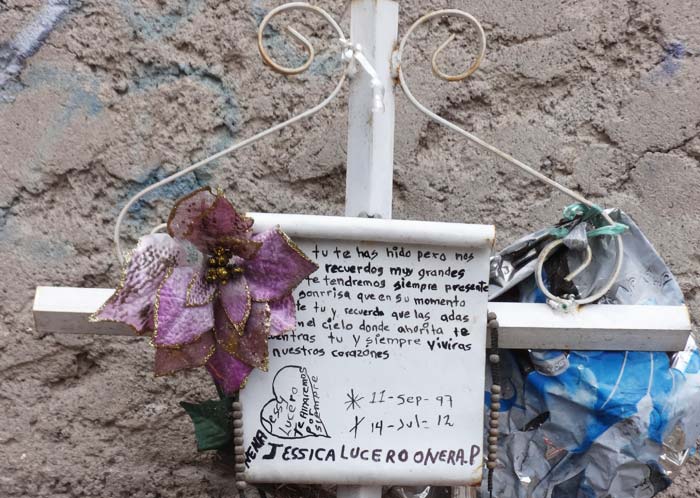 tu te has hido pero nos
recuerdos muy grandes
te tendremos siempre presente
sonrrisa que en su momento
te tu y recuerda que las adas
en el cielo donde ahorita te
entras tu y siempre Viviras
nuestros corazones
Jessy
Lucero
Te Amaremos
Por
siempre
11-Sep-97
14-Jul-12
NENA
JESSICA LUCERO OLVERA.P